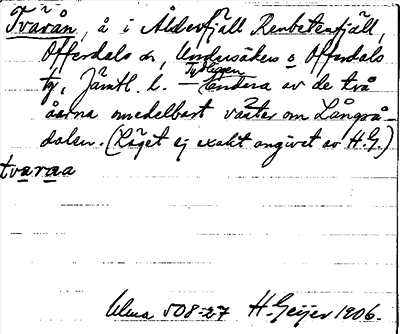 Tvärån, å i Åldersfjäll Renbetesfjäll,
Offerdals sn, Undersåkers o Offerdals
tg, Jämtl. l. — Tydligen Endera av de två
åarna omedelbart väster om Långså-
dalen. (Läget ej exakt angivet av H.G.)
tväråa
Ulma 508:27 H. Geijer 1906.